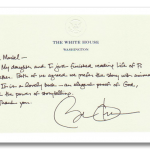 THE WHITE HOUSE
WASHINGTON
My daughter and I just finished reading Life of Pi
Both of us agreed we prefer the story with
It is a lovely book — an elegant proof of God,
the power of storytelling.
Thank you.